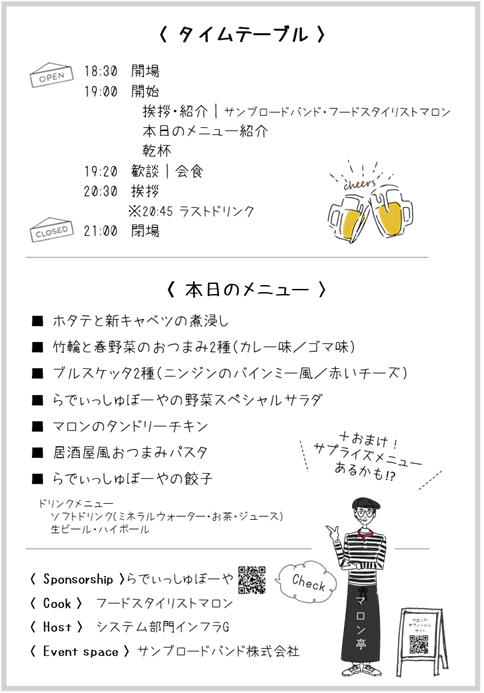 〈 タイムテーブル 〉
OPEN
18:30 開場
19:00 開始
挨拶・紹介｜サンブロードバンド・フードスタイリストマロン
本日のメニュー紹介
乾杯
19:20 歓談｜会食
20:30 挨拶
※20:45 ラストドリンク
CLOSED
21:00 閉場
cheers
〈 本日のメニュー 〉
■ ホタテと新キャベツの煮浸し
■ 竹輪と春野菜のおつまみ2種(カレー味／ゴマ味)
■ ブルスケッタ2種(ニンジンのバインミー風／赤いチーズ)
■ らでぃっしゅぼーやの野菜スペシャルサラダ
■ マロンのタンドリーチキン
■ 居酒屋風おつまみパスタ
■ らでぃっしゅぼーやの餃子
＋おまけ！
サプライズメニュー
あるかも!?
ドリンクメニュー
ソフトドリンク(ミネラルウォーター・お茶・ジュース)
生ビール・ハイボール
〈 Sponsorship 〉らでぃっしゅぼーや
Check
〈 Cook 〉 フードスタイリストマロン
〈 Host 〉 システム部門インフラG
〈 Event space 〉サンブロードバンド株式会社
マロン亭
マロンの
オフィシャル
サイト